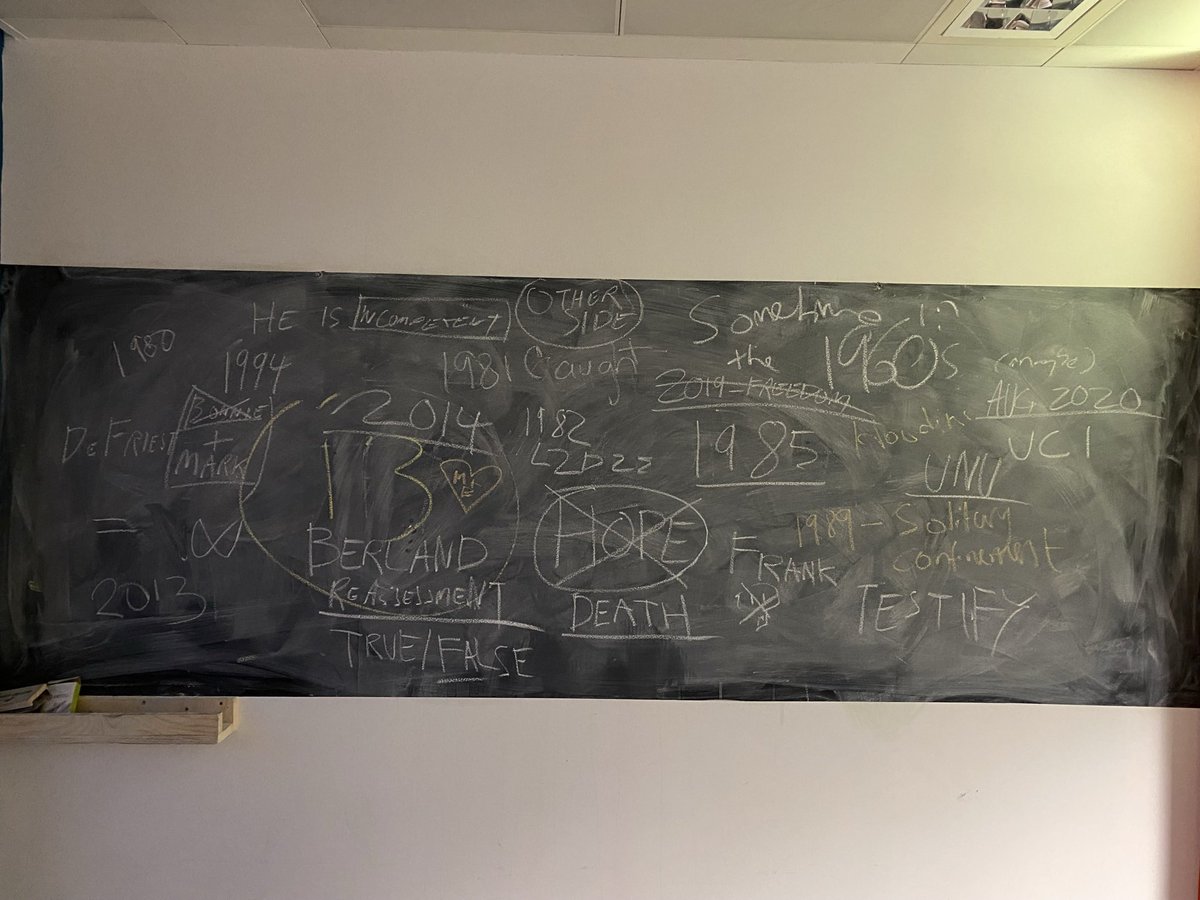 HE IS INCOMPETENT
OTHER
SIDE
Sometime in
the 1960s
1980
1994
1981 Caught
2019-FREEDOM
(maybe)
AUG 2020
BONNIE
+
MARK
DEFRIEST
2014
1982
1985
UCI
13
M+E
UNU
= ∞
HOPE
1989 - Solitary
confinement
BERLAND
FRANK
2013
REASSESSMENT
DEATH
TESTIFY
TRUE/FALSE